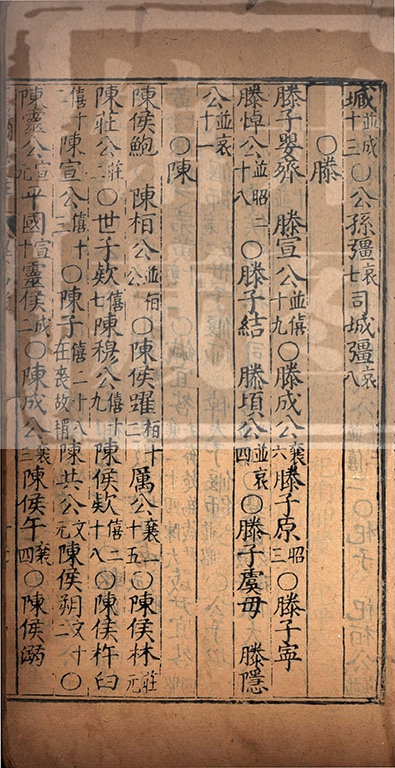 並成十三〇公孫彊哀七司城彊哀八
〇滕
滕子嬰齊　滕宣公並僖十九〇滕成公襄六滕子原昭三〇滕子寧
滕悼公並昭二十八〇滕子結　滕頃公並哀四〇滕子虞毋　滕隱
公並哀十一
〇陳
陳侯鮑　陳桓公並桓公〇陳侯躍桓十二厲公襄二十五〇陳侯林莊元
陳莊公莊二〇世子欵僖七陳穆公僖十九陳侯欵僖二十八〇陳侯杵臼
僖十二陳宣公僖十二〇陳子僖二十八在喪故稱陳共公文元陳侯朔文十二〇
陳靈公宣元平國宣十靈侯成二〇陳成公襄三陳侯午襄四〇陳侯溺